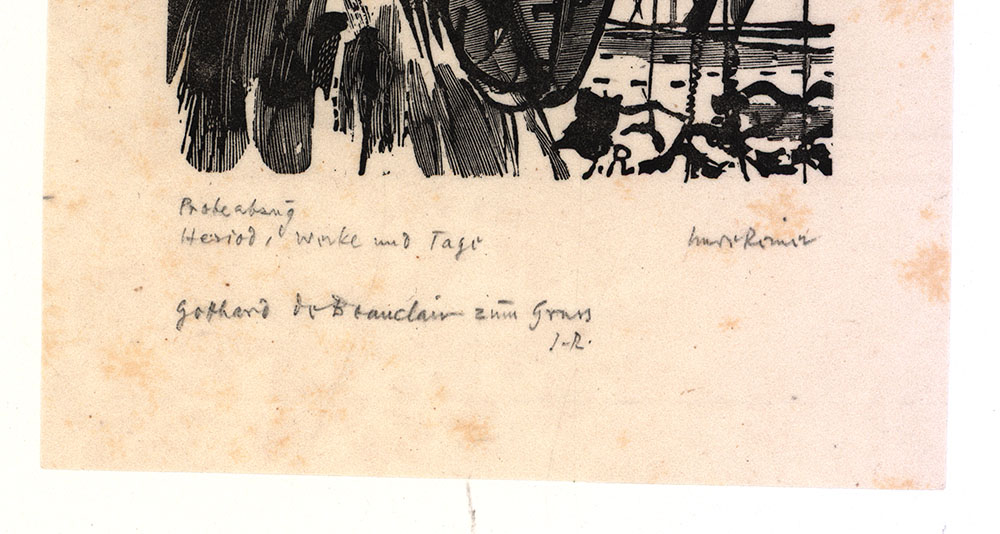 I.R
Probeabzug
Hesiod, Werke und Tage
Imre Reiner
Gotthard de Beauclair zum Gruss
I.R.